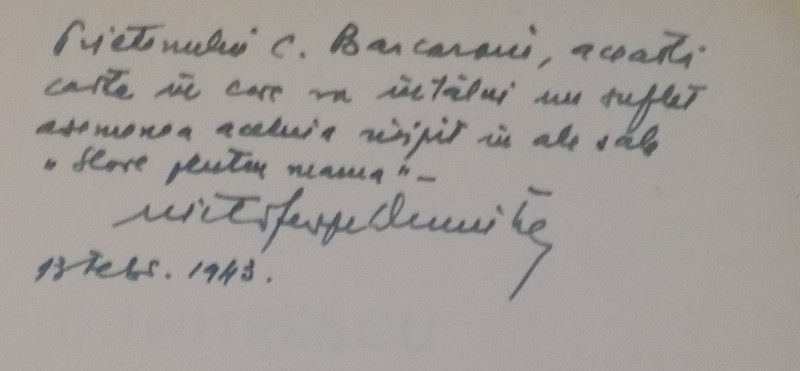 Prietenului C. Barcaroiu, această
carte în care va întâlni un suflet
asemenea aceluia risipit în ale sale
„Slove pentru mama” –
13 Febr. 1943.
DUMITRESCU